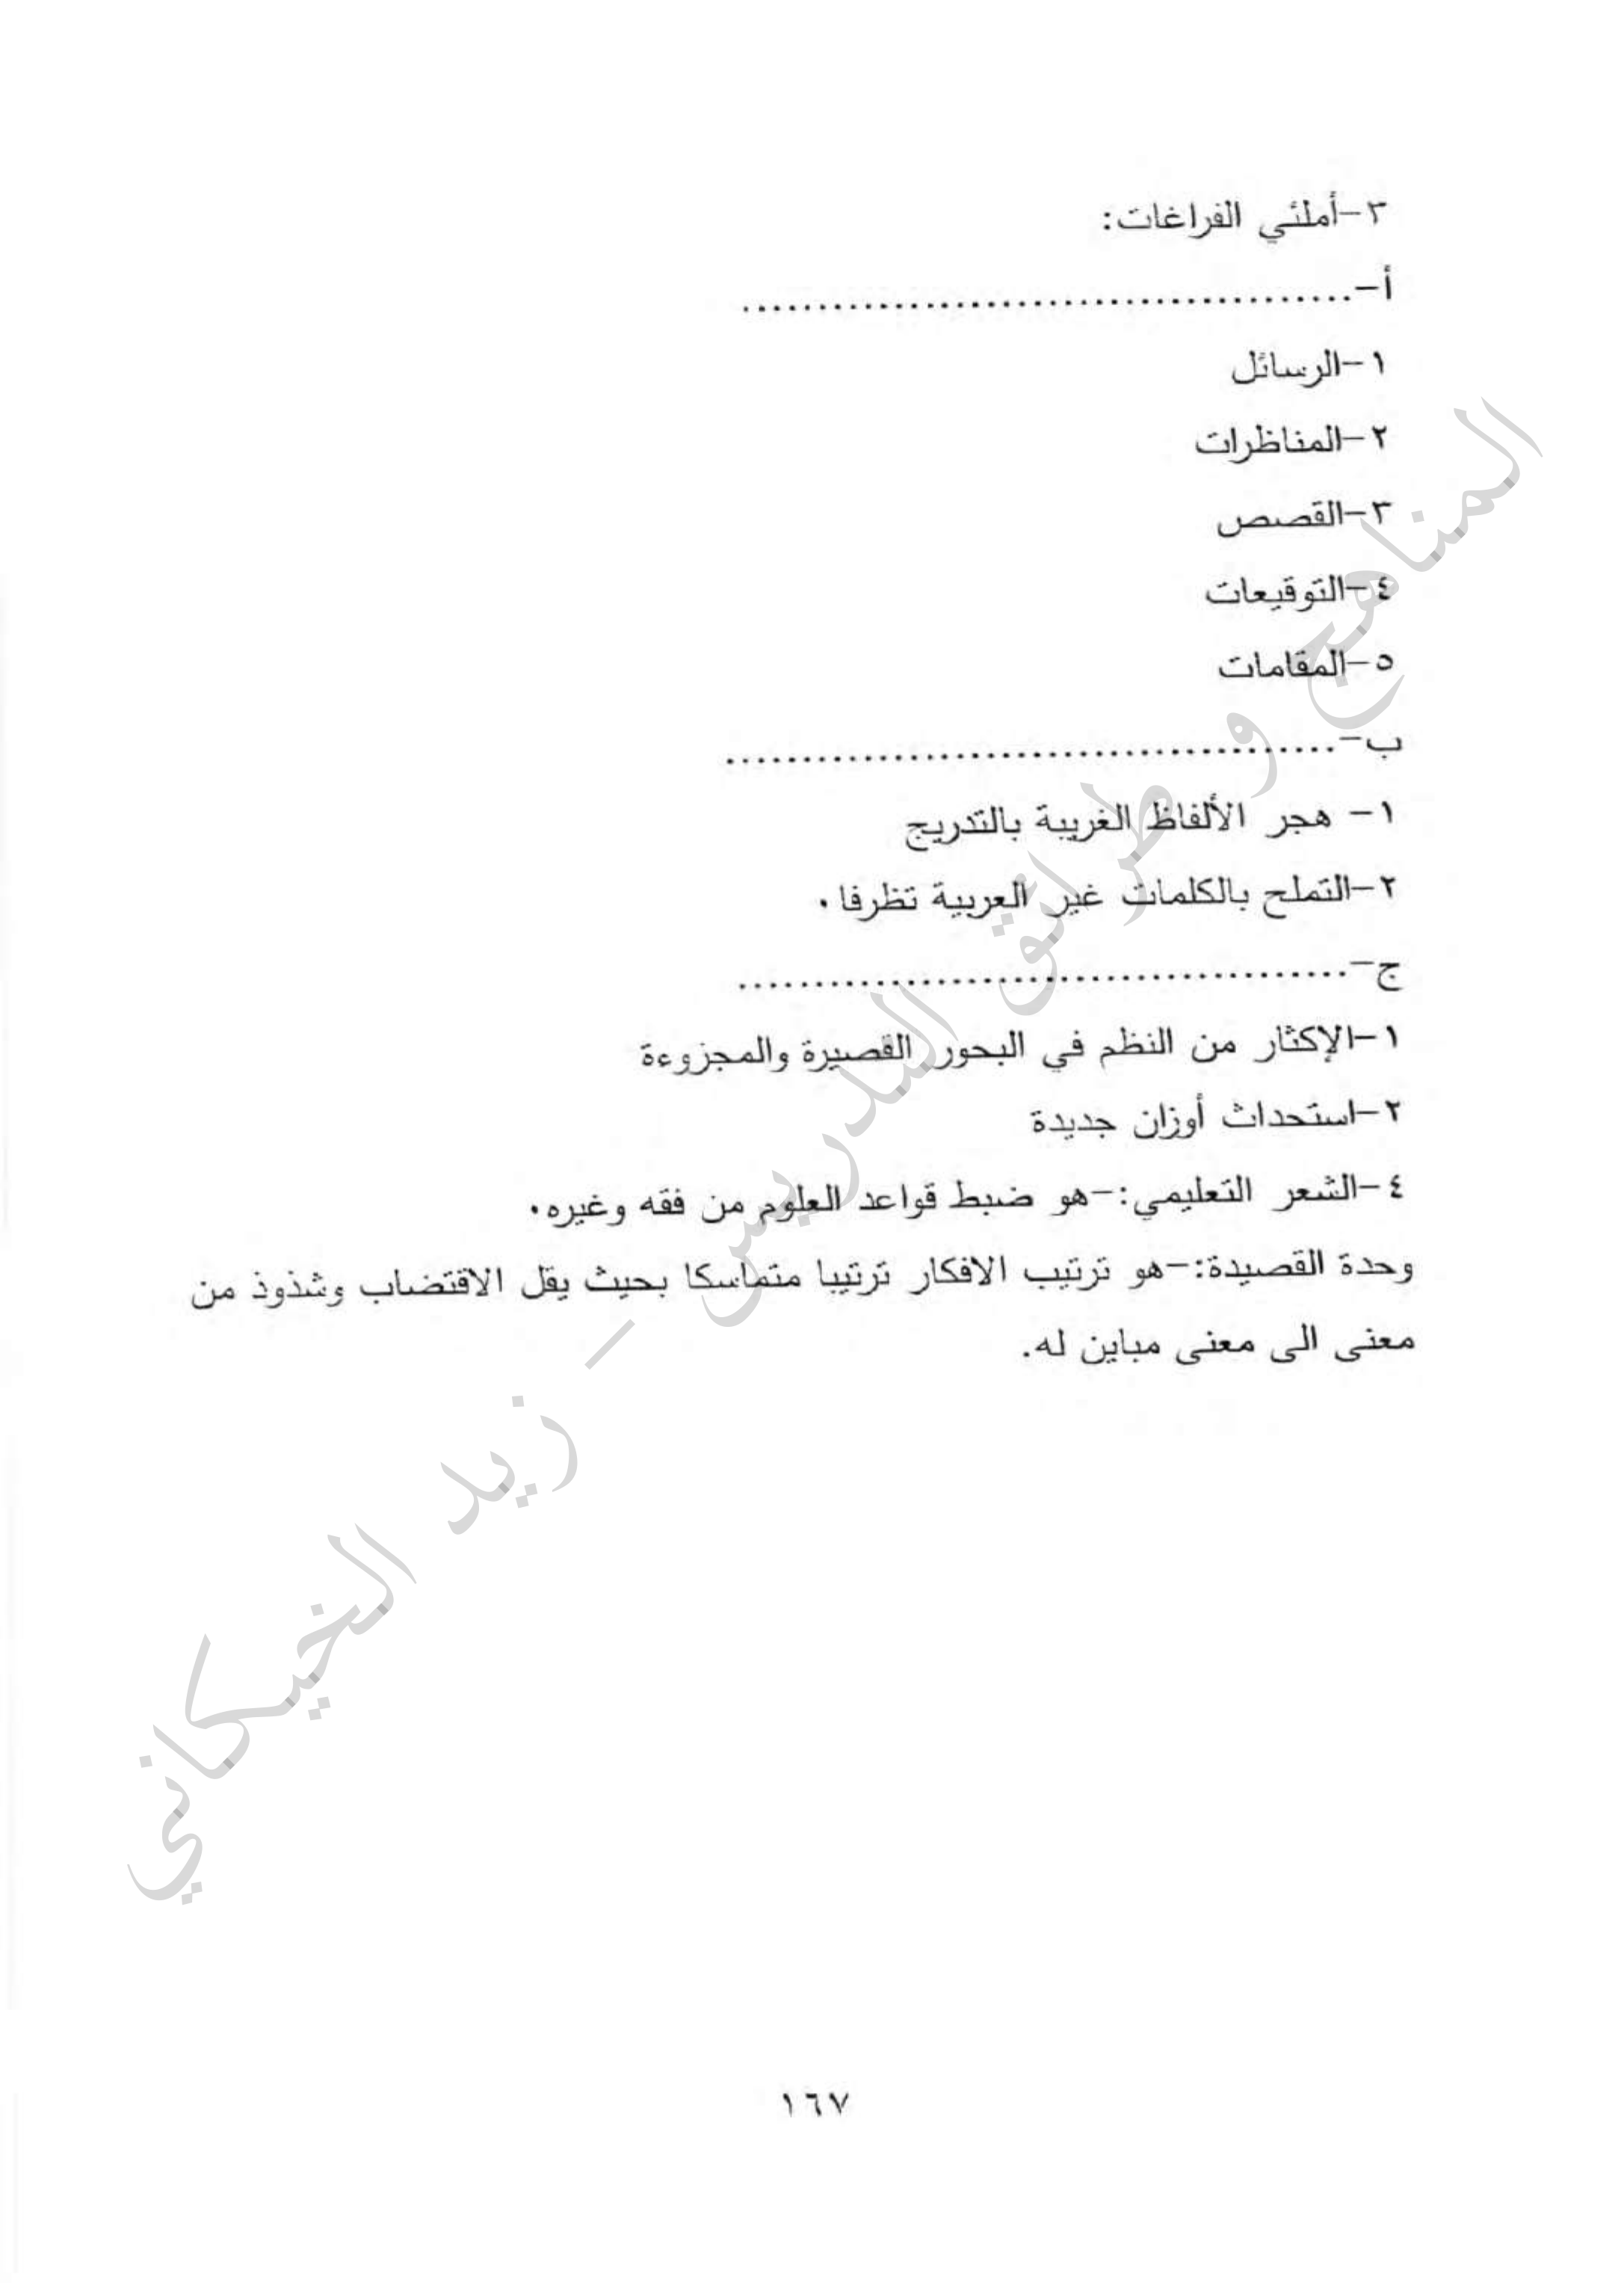 ٣-أملئي الفراغات:
أ-........................................
١-الرسائل
٢-المناظرات
٣-القصص
٤-التوقيعات
٥-المقامات
ب-........................................
١- هجر الألفاظ الغريبة بالتدريج
٢-التملح بالكلمات غير العربية تظرفا.
ج-........................................
١-الإكثار من النظم في البحور القصيرة والمجزوءة
٢-استحداث أوزان جديدة
٤-الشعر التعليمي:-هو ضبط قواعد العلوم من فقه وغيره.
وحدة القصيدة:-هو ترتيب الافكار ترتيبا متماسكا بحيث يقل الاقتضاب وشذوذ من
معنى الى معنى مباين له.
المناهج و طرائق التدريس - زيد الخيكاني
١٦٧